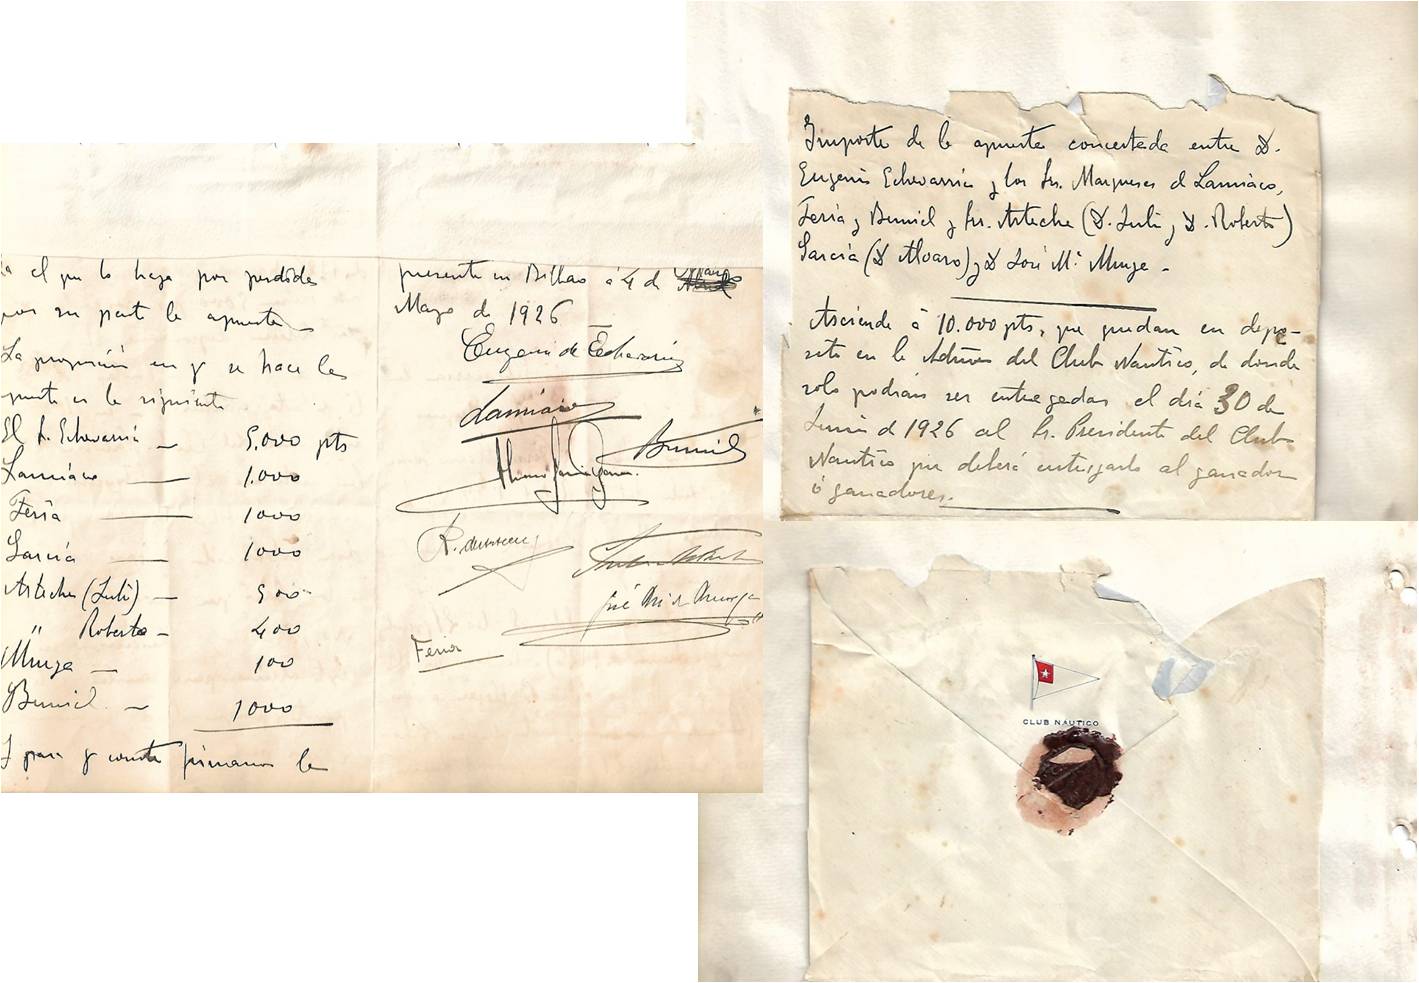 el que lo haga por perdida
por su parte la apuesta
La proporción en q se hace la
apuesta es la siguiente
El Sr. Echevarria — 5.000 pts
Lamiaco — 1.000
Feria — 1000
García — 1000
Arteche (Luli) — 500
" Roberto — 400
Munga — 100
Buniel — 1000
Y para q conste firmamos la
presente en Bilbao á 4 de
Mayo de 1926
Eugenio de Echavarria
Lamiaco
Buniel
R. de Arteche
José Mª de Munga
Feria
Importe de la apuesta concertada entre D.
Eugenio Echevarria y los Sr. Marqueses d Lamiaco,
Feria y Buniel y Sr. Arteche (D. Luli y D. Roberto)
García (D Alvaro) y D José Mª Munga -
Asciende á 10.000 pts, que quedan en depo-
sito en la Admon del Club Nautico, de donde
solo podrán ser entregadas el día 30 de
Junio d 1926 al Sr. Presidente del Club
Nautico que deberá entregarlo al ganador
ó ganadores.
CLUB NAUTICO